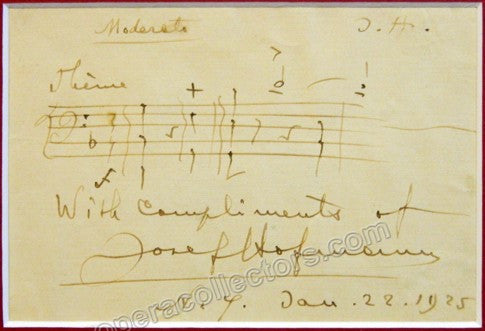 Moderato J. H.
Thème
With compliments of
Josef Hofmann
N.Y. Jan. 22. 1925
operacollectors.com